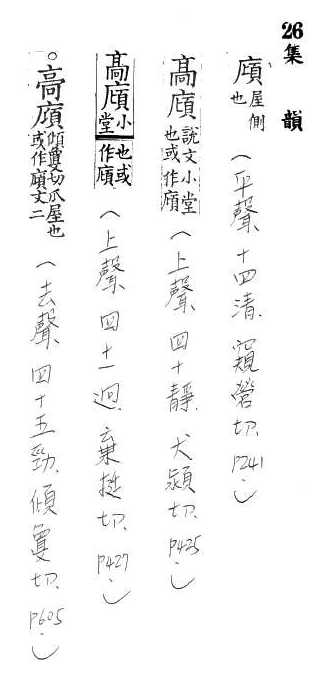 26集韻
廎屋側也(平聲十四清.窺營切.P241.)
高廎說文小堂也或作廎(上聲四十靜.犬潁切.P425.)
高廎小堂也或作廎(上聲四十一迥.棄挺切.P427.)
。高廎傾敻切瓜屋也或作廎文二(去聲四十五勁.傾敻切.P605.)